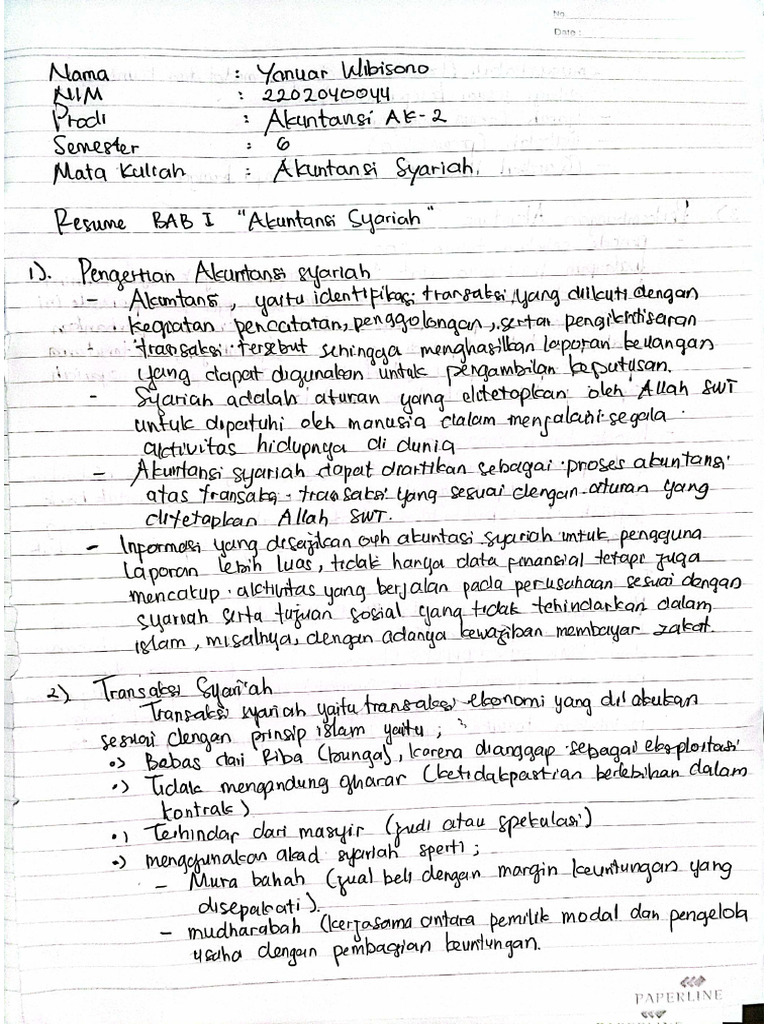 No.
Date :
Nama : Yanuar Wibisono
NIM : 2202040044
Prodi : Akuntansi AK-2
Semester : 6
Mata Kuliah : Akuntansi Syariah.
Resume BAB I "Akuntansi Syariah"
1). Pengertian Akuntansi syariah
- Akuntansi, yaitu identifikasi transaksi yang diikuti dengan
kegiatan pencatatan, penggolongan, serta pengikhtisaran
transaksi tersebut sehingga menghasilkan laporan keuangan
yang dapat digunakan untuk pengambilan keputusan.
- Syariah adalah aturan yang ditetapkan oleh Allah SWT
untuk dipatuhi oleh manusia dalam menjalani segala
aktivitas hidupnya di dunia
- Akuntansi syariah dapat diartikan sebagai proses akuntansi
atas transaksi-transaksi yang sesuai dengan aturan yang
ditetapkan Allah SWT.
- Informasi yang disajikan oleh akuntasi syariah untuk pengguna
laporan lebih luas, tidak hanya data finansial tetapi juga
mencakup aktivitas yang berjalan pada perusahaan sesuai dengan
syariah serta tujuan sosial yang tidak tehindarkan dalam
islam, misalnya, dengan adanya kewajiban membayar zakat.
2) Transaksi Syari'ah
Transaksi syariah yaitu transaksi ekonomi yang dilakukan
sesuai dengan prinsip islam yaitu ;
•) Bebas dari Riba (bunga), karena dianggap sebagai eksploitasi
•) Tidak mengandung gharar (ketidakpastian berlebihan dalam
kontrak)
•) Terhindar dari masyir (judi atau spekulasi)
•) menggunakan akad syariah sperti ;
- Mura bahah (jual beli dengan margin keuntungan yang
disepakati).
- mudharabah (kerjasama antara pemilik modal dan pengelola
usaha dengan pembagian keuntungan.
PAPERLINE